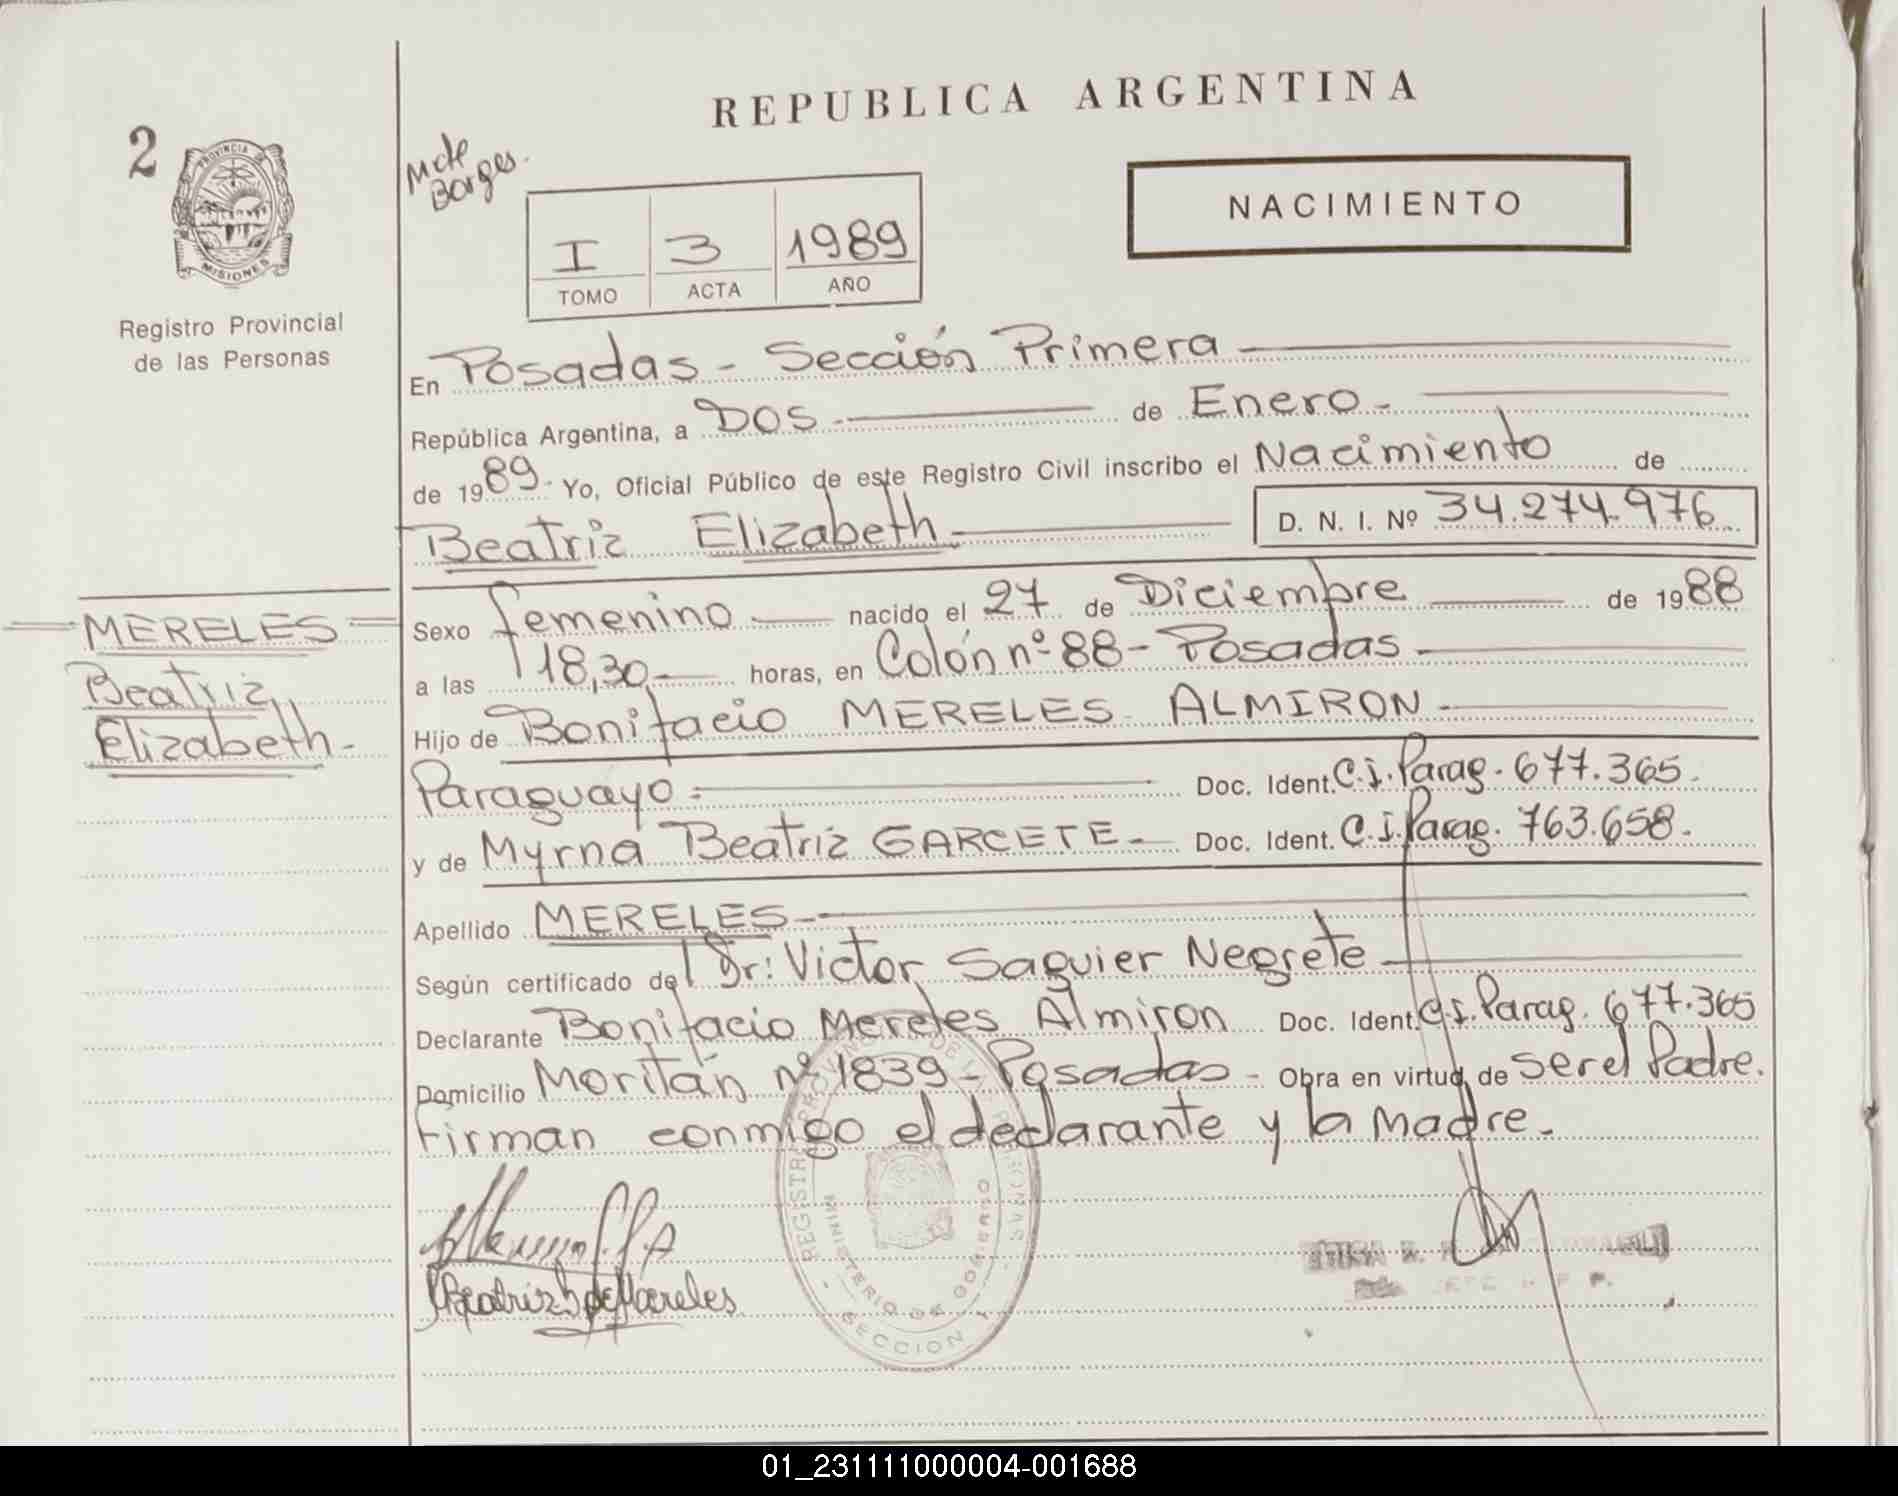 REPUBLICA ARGENTINA
2
PROVINCIA DE
MISIONES
Registro Provincial
de las Personas
Mde
Borges.
I 3 1989
TOMO ACTA AÑO
NACIMIENTO
En Posadas - Sección Primera
República Argentina, a DOS de Enero
de 1989. Yo, Oficial Público de este Registro Civil inscribo el Nacimiento de
Beatriz Elizabeth D. N. I. Nº 34.274.976
MERELES
Beatriz
Elizabeth
Sexo femenino nacido el 27 de Diciembre de 1988
a las 18,30 horas, en Colón nº 88 - Posadas
Hijo de Bonifacio MERELES ALMIRON
Paraguayo Doc. Ident. C.I. Parag. 677.365.
y de Myrna Beatriz GARCETE Doc. Ident. C.I. Parag. 763.658.
Apellido MERELES
Según certificado del Dr: Victor Saguier Negrete
Declarante Bonifacio Mereles Almiron Doc. Ident. C.I. Parag. 677.365
Domicilio Moritán nº 1839 - Posadas - Obra en virtud de ser el Padre.
Firman conmigo el declarante y la Madre.
Beatriz de Mereles
MINISTERIO DE GOBIERNO
SECCION
01_231111000004-001688